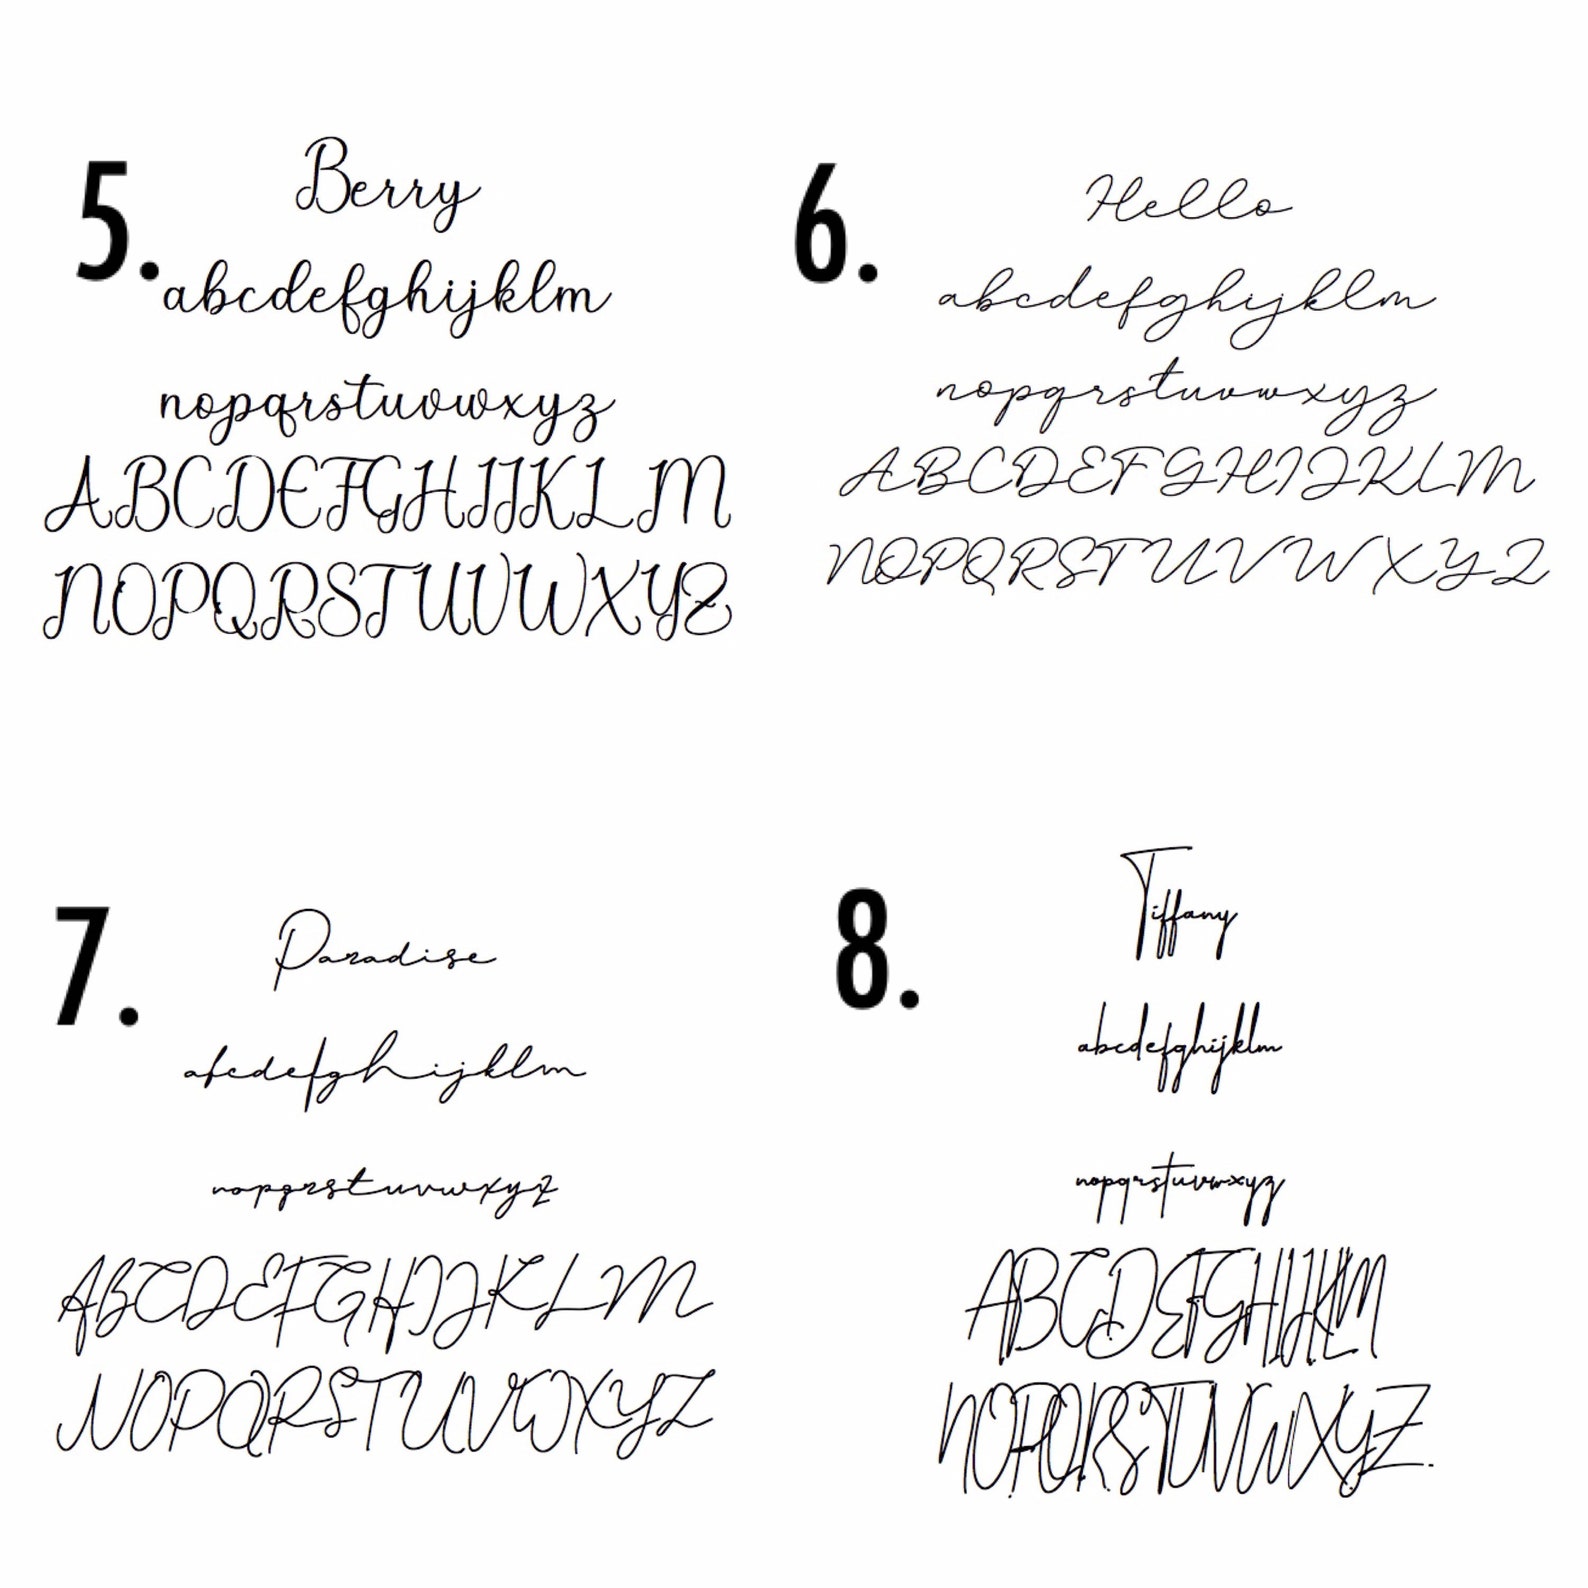 5.
Berry
abcdefghijklm
nopqrstuvwxyz
ABCDEFGHIJKLM
NOPQRSTUVWXYZ
6.
Hello
abcdefghijklm
nopqrstuvwxyz
ABCDEFGHIJKLM
NOPQRSTUVWXYZ
7.
Paradise
abcdefghijklm
nopqrstuvwxyz
ABCDEFGHIJKLM
NOPQRSTUVWXYZ
8.
Tiffany
abcdefghijklm
nopqrstuvwxyz
ABCDEFGHIJKLM
NOPQRSTUVWXYZ